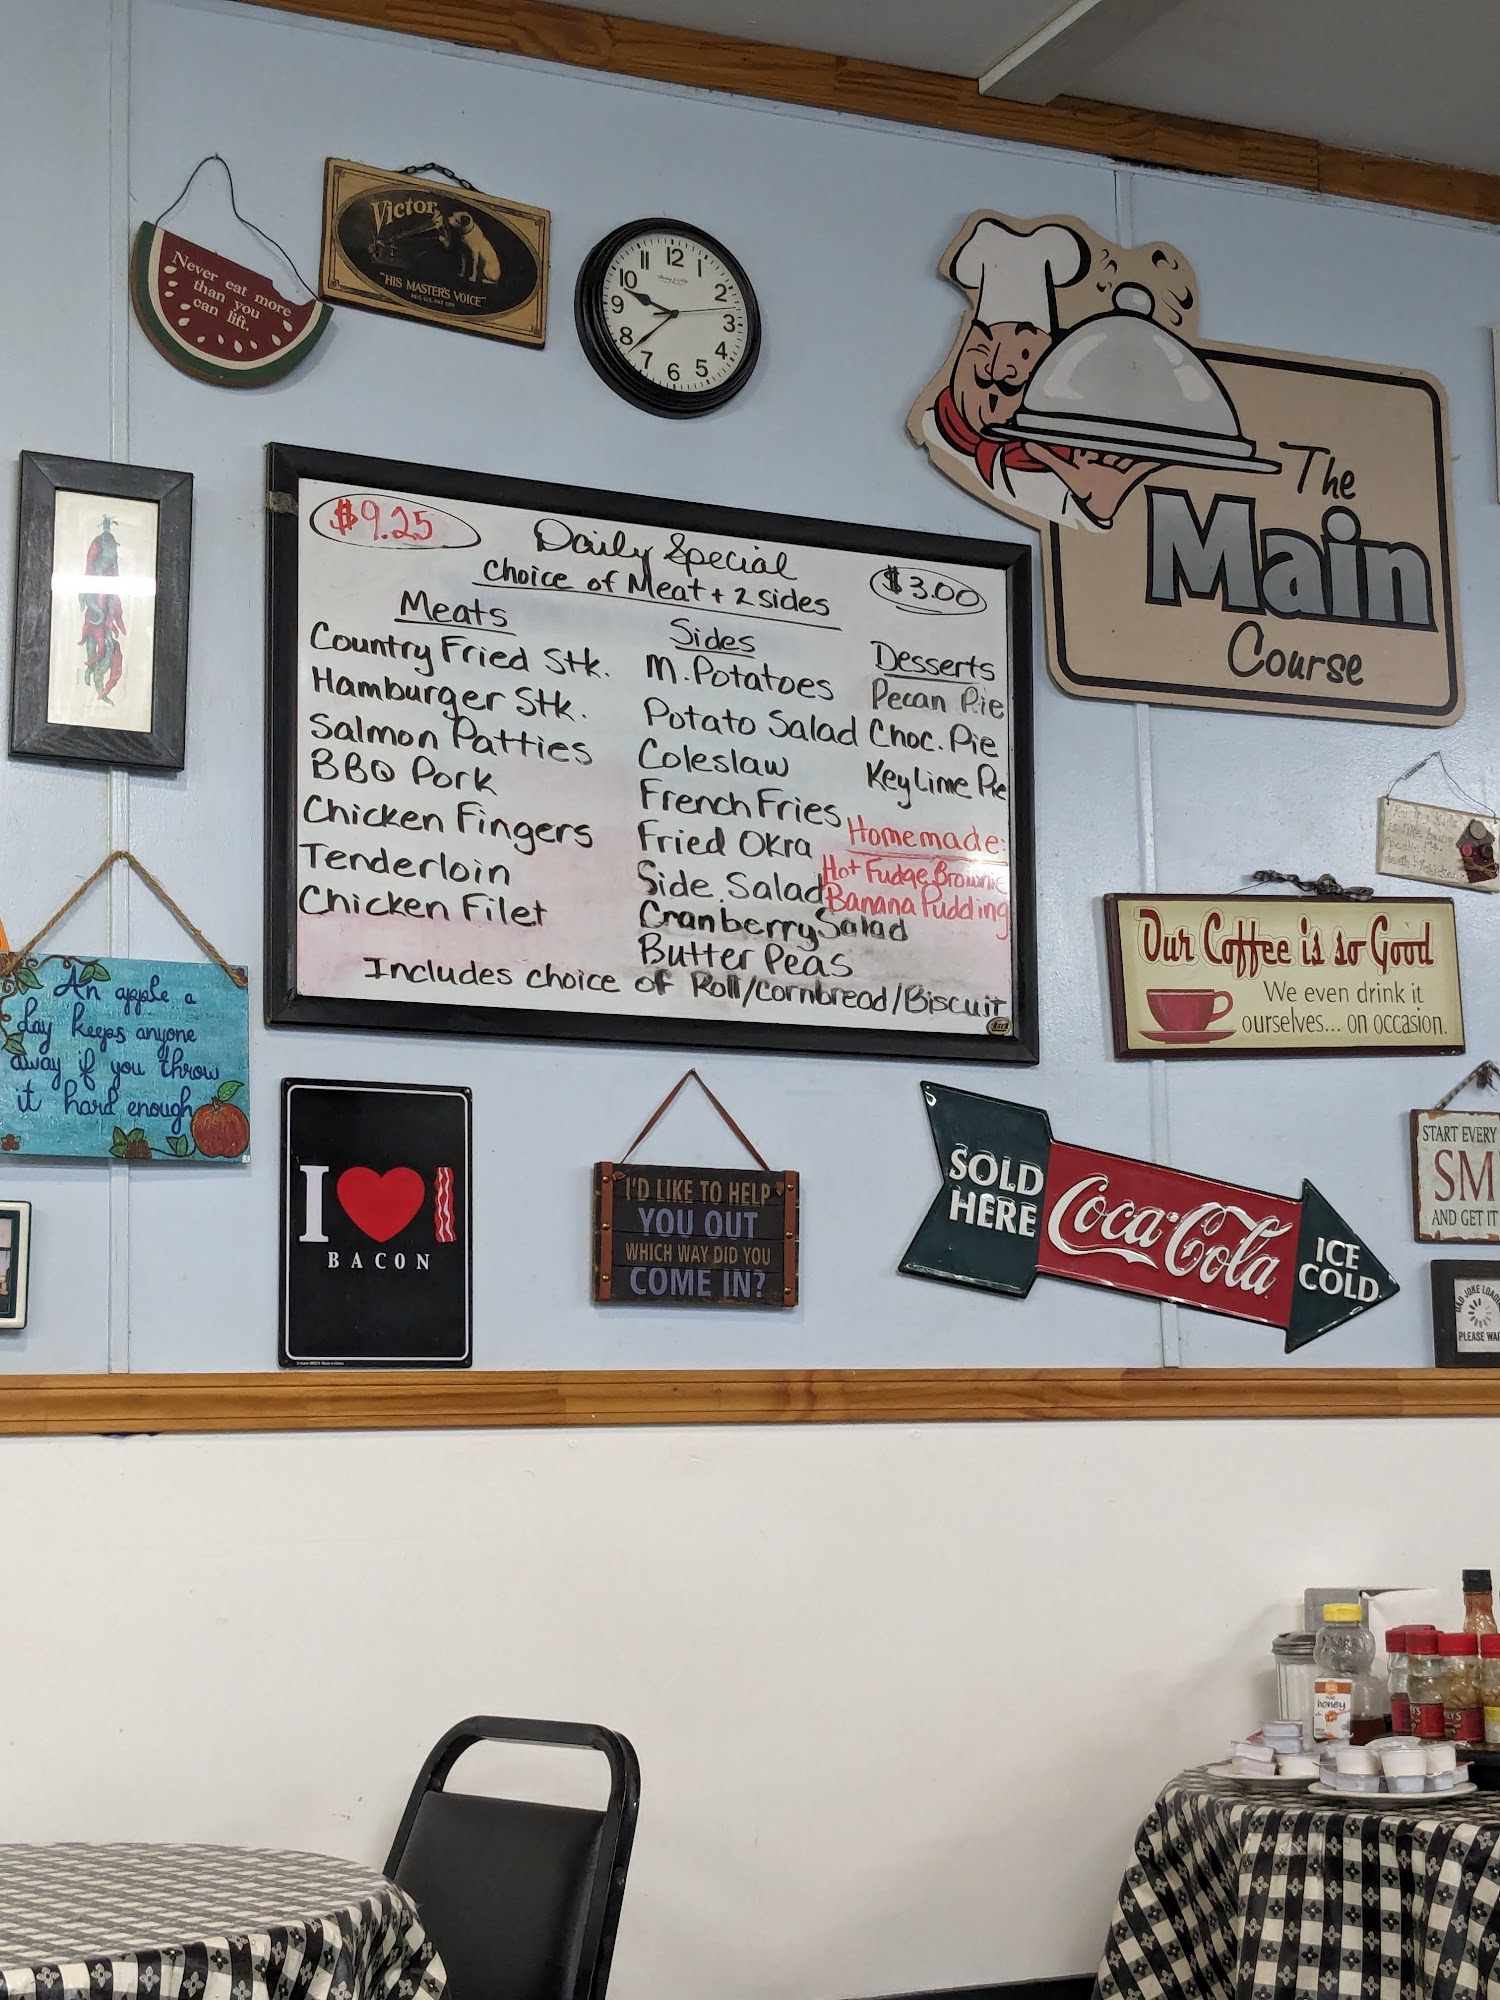 Never eat more
than you
can lift.
Victor
"HIS MASTER'S VOICE"
12
1
2
3
4
5
6
7
8
9
10
The
Main
Course
$9.25
Daily Special
Choice of Meat + 2 sides
$3.00
Meats
Country Fried Stk.
Hamburger Stk.
Salmon Patties
BBQ Pork
Chicken Fingers
Tenderloin
Chicken Filet
Sides
M. Potatoes
Potato Salad
Coleslaw
French Fries
Fried Okra
Side Salad
Cranberry Salad
Butter Peas
Desserts
Pecan Pie
Choc. Pie
Key Lime Pie
Homemade:
Hot Fudge Brownie
Banana Pudding
Includes choice of Roll/Cornbread/Biscuit
Our Coffee is so Good
We even drink it
ourselves... on occasion.
An apple a
day keeps anyone
away if you throw
it hard enough
I
BACON
I'D LIKE TO HELP
YOU OUT
WHICH WAY DID YOU
COME IN?
SOLD
HERE
Coca-Cola
ICE
COLD
START EVERY
SM
AND GET IT
DAD JOKE LOADI
PLEASE WAI
honey